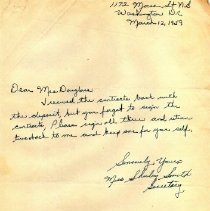 1172 Morse St N.E
Washington DC
March 12, 1959
Dear Mrs. Douglass
I received the contracts back with
the deposit, but you forget to sign the
contracts. Please sign all three and return
two back to me and keep one for your self.
Sincerely Yours
Mrs Shirley Smith
Secretary